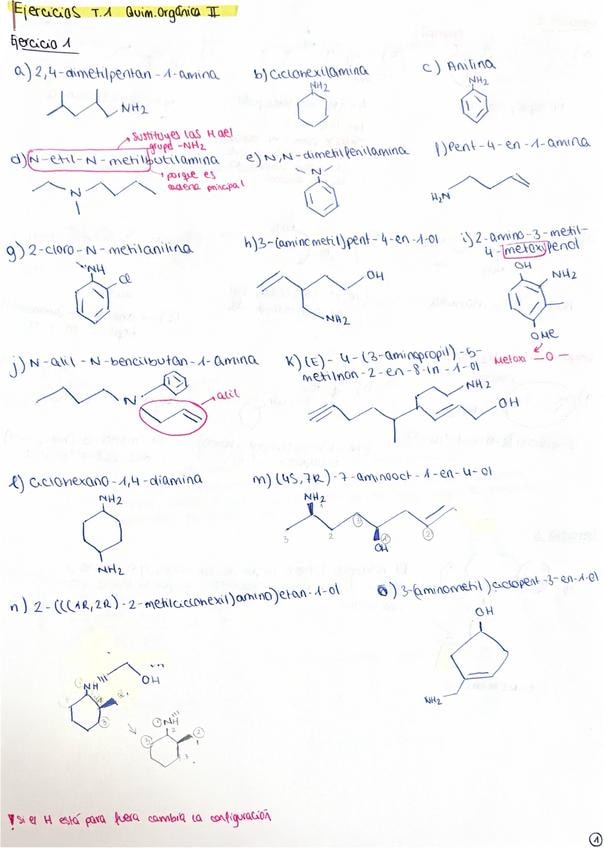 Ejercicios T.1 Quím.Orgánica II
Ejercicio 1
a) 2,4-dimetilpentan-1-amina
b) Ciclohexilamina
c) Anilina
NH2
NH2
NH2
Sustituyes los H del
grupo -NH2
d) N-etil-N-metilbutilamina
porque es
cadena principal
N
e) N,N-dimetilfenilamina
N
f) Pent-4-en-1-amina
H2N
g) 2-cloro-N-metilanilina
NH
Cl
h) 3-(aminometil)pent-4-en-1-ol
OH
NH2
i) 2-amino-3-metil-
4-metoxifenol
OH
NH2
OMe
Metoxi -O-
j) N-alil-N-bencilbutan-1-amina
N
alil
k) (E)-4-(3-aminopropil)-5-
metilnon-2-en-8-in-1-ol
NH2
OH
l) Ciclohexano-1,4-diamina
NH2
NH2
m) (4S,7R)-7-aminooct-1-en-4-ol
NH2
3
2
3
1
OH
2
n) 2-(((1R,2R)-2-metilciclohexil)amino)etan-1-ol
NH
OH
3
NH
1
2
2
1
3
3
o) 3-(aminometil)ciclopent-3-en-1-ol
OH
NH2
! Si el H está para fuera cambia la configuración
1